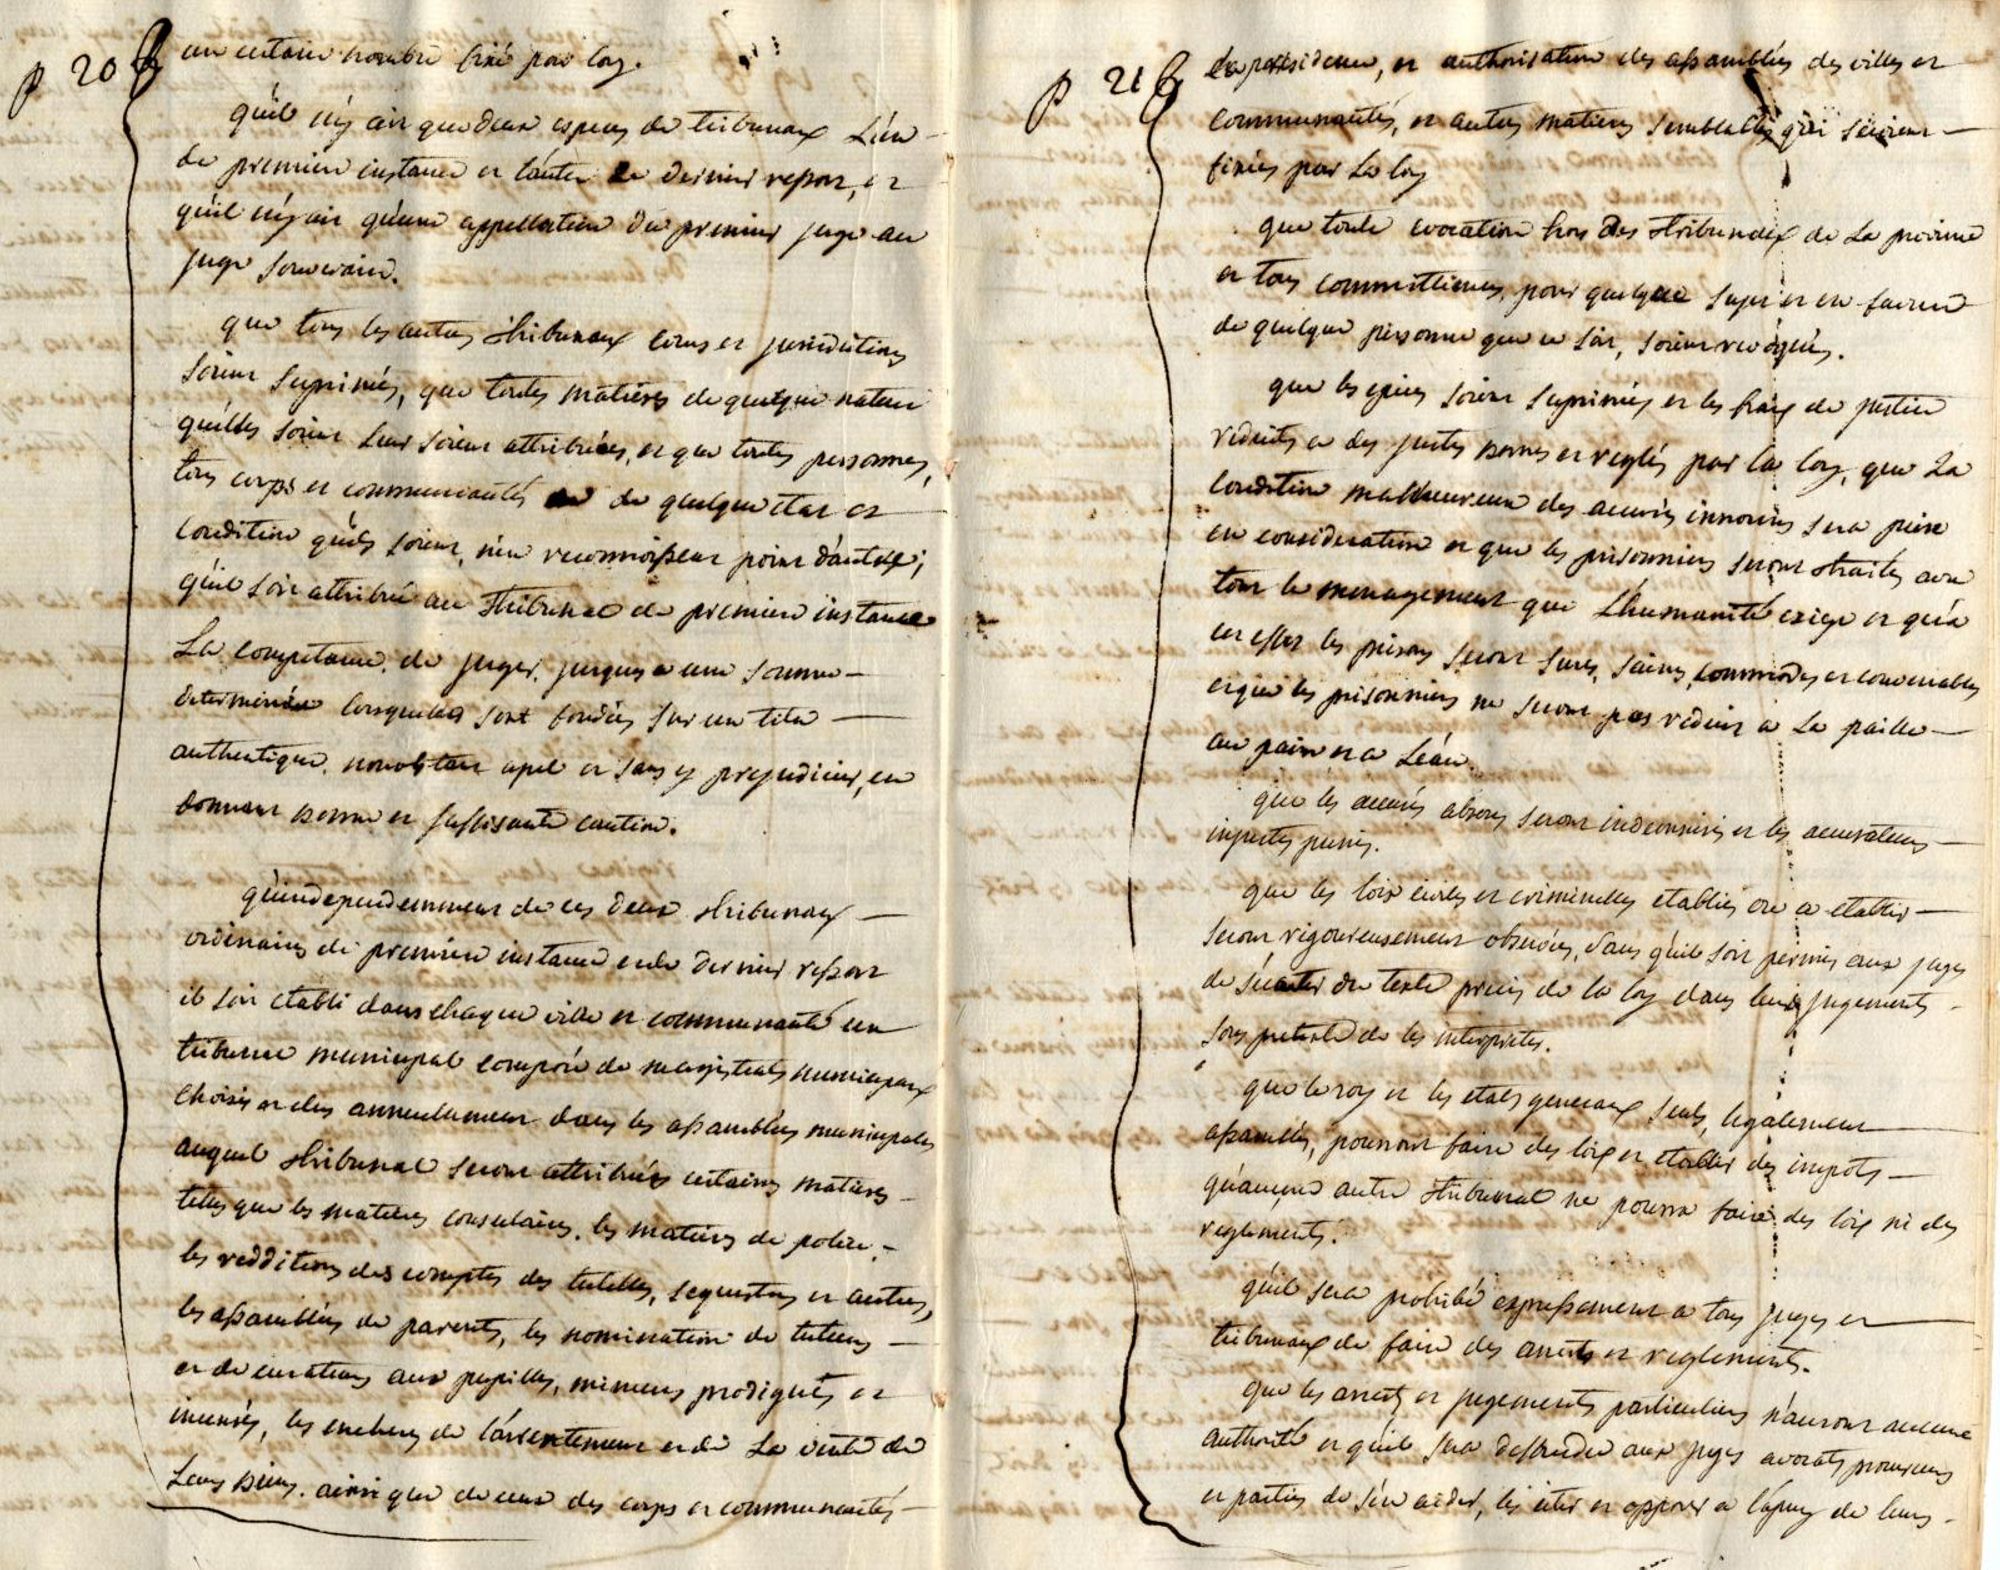 p 20
un certain nombre fixé par loy.
qu'il n'y ait que deux especes de tribunaux L'un
de premiere instance et l'autre de dernier ressort, et
qu'il n'y ait qu'une appellation du premier juge au
juge souverain.
que tous les autres thribunaux cours et jurisdictions
soient suprimés, que toutes matieres de quelque nature
qu'elles soient leur soient attribuées, et que toutes personnes,
tous corps et communautés de quelque etat et
condition qu'ils soient, n'en reconnoissent point d'autres;
qu'il soit attribué au thribunal de premiere instance
La competance de juger jusques a une somme
determinée lorsquelles sont fondées sur un titre
authentique, nonobstant apel et sans y prejudicier, en
donnant bonne et suffisante caution.
qu'independemment de ces deux thribunaux
ordinaires de premiere instance et de dernier ressort
il soit etabli dans chaque ville et communauté un
tribunal municipal composé de magistrats municipaux
choisis et elus annuelement dans les assamblées municipales
auquel thribunal seront attribuées certaines matieres
telles que les matieres consulaires, les matieres de police,
les redditions des comptes des tutelles, sequestres et autres,
les assamblées de parents, les nomination de tuteurs
et de curateurs aux pupilles, mineurs prodigues et
incensés, les encheres de l'arrentement et de La vente de
Leurs biens, ainsi que de ceux des corps et communautés
p 21
La presidence, et authorisation des assamblées des villes et
communautés, et autres matieres semblables qui seroient
fixées par La loy
que toute evocation hors des thribunaux de La province
et tous committimus, pour quelque sujet et en faveur
de quelque personne que ce soit, soient revoqués.
que les epices soient suprimées et les fraix de justice
reduits a des justes bornes et reglés par la loy, que La
condition malheureuse des accusés innocens sera prise
en consideration et que les prisonniers seront thraités avec
tout le menagement que L'humanité exige et qu'a
cet effet les prisons seront sures, saines, commodes et convenables
et que les prisonniers ne seront pas reduits a La paille
au pain et a L'eau.
que les accusés absous seront indemnisés et les accusateurs
injustes punis.
que les loix civiles et criminelles etablies ou a etablir
seront rigoureusement observées, sans qu'il soit permis aux juges
de s'ecarter du texte precis de la loy dans leurs jugements
sous pretexte de les interpreter.
que le roy et les etats generaux seuls, legalement
assamblés, pourront faire des loix et etablir des impots
qu'aucune autre thribunal ne pourra faire des loix ni des
reglements.
qu'il sera prohibé expressement a tous juges et
tribunaux de faire des arrets et reglements.
que les arrets et jugements particuliers n'auront aucune
authorité et qu'il sera deffendu aux juges avocats procureurs
et parties de s'en aider, les citer et opposer a l'apuy de leurs